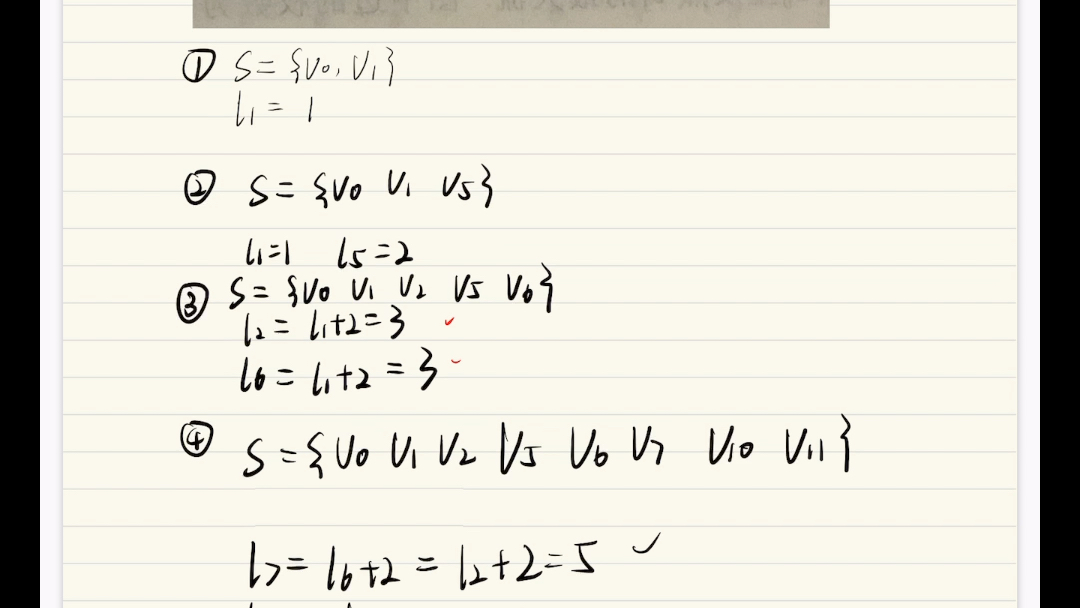 ① S={v0, v1}
l1 = 1
② S={v0 v1 v5}
l1=1 l5=2
③ S={v0 v1 v2 v5 v6}
l2 = l1+2=3 ✓
l6 = l1+2 = 3
④ S={v0 v1 v2 v5 v6 v7 v10 v11}
l7= l6+2 = l2+2=5 ✓